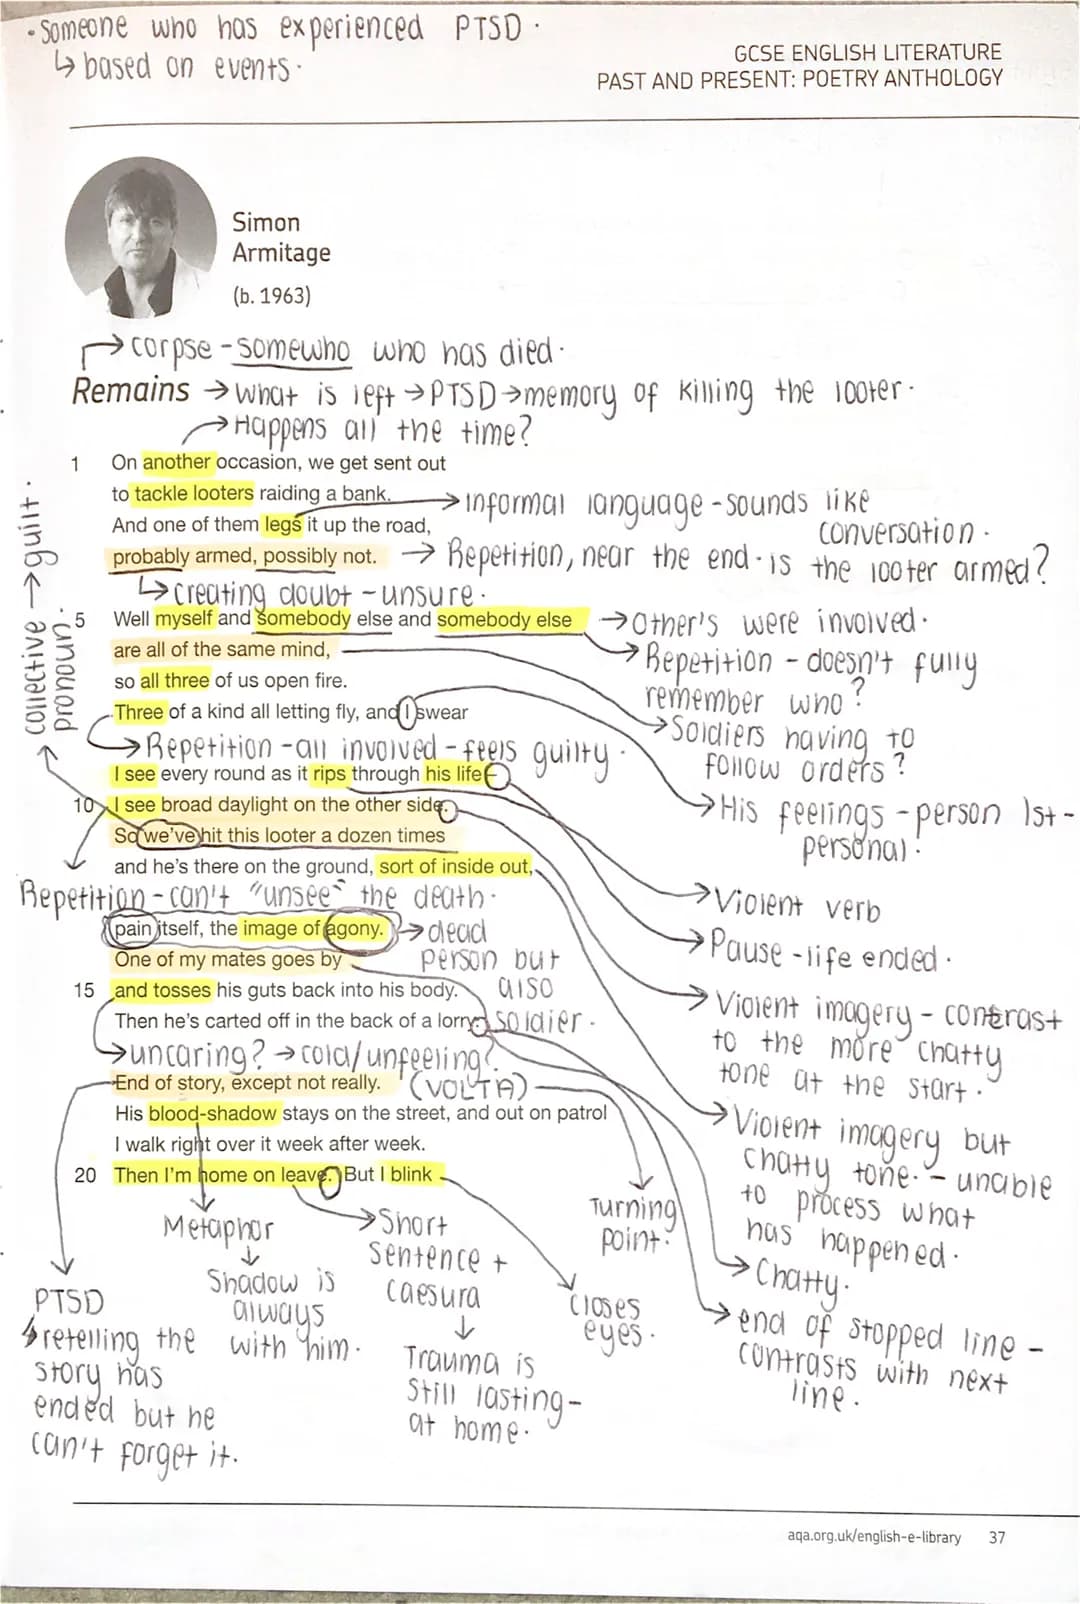 • Someone who has experienced PTSD.
↳ based on events.
GCSE ENGLISH LITERATURE
PAST AND PRESENT: POETRY ANTHOLOGY
Simon
Armitage
(b. 1963)
→ corpse - somewho who has died.
Remains → What is left → PTSD → memory of killing the looter.
→ Happens all the time?
1 On another occasion, we get sent out
to tackle looters raiding a bank.
→ informal language - sounds like conversation.
And one of them legs it up the road,
probably armed, possibly not. → Repetition, near the end - is the looter armed?
↳ creating doubt - unsure.
collective pronoun. → guilt.
5 Well myself and somebody else and somebody else → Other's were involved.
→ Repetition - doesn't fully
remember who?
are all of the same mind,
→ Soldiers having to
follow orders?
so all three of us open fire.
Three of a kind all letting fly, and I swear
→ Repetition - all involved - feels guilty.
→ His feelings - person 1st -
personal.
I see every round as it rips through his life –
10 I see broad daylight on the other side.
So we've hit this looter a dozen times
and he's there on the ground, sort of inside out,
Repetition - can't "unsee" the death.
→ Violent verb
→ Pause - life ended.
pain itself, the image of agony. → dead
person but
also
soldier.
One of my mates goes by
15 and tosses his guts back into his body.
Then he's carted off in the back of a lorry.
→ Violent imagery - contrast
to the more chatty
tone at the start.
→ uncaring? → cold/unfeeling?
End of story, except not really. (VOLTA)
His blood-shadow stays on the street, and out on patrol
I walk right over it week after week.
20 Then I'm home on leave. But I blink
→ Violent imagery but
chatty tone. - unable
to process what
has happened.
Turning
point.
→ Chatty.
→ end of stopped line -
contrasts with next
line.
Metaphor
↓
Shadow is
always
with him.
→ Short
sentence +
caesura
↓
Trauma is
still lasting -
at home.
closes
eyes.
PTSD
↳ retelling the
story has
ended but he
can't forget it.
aqa.org.uk/english-e-library 37